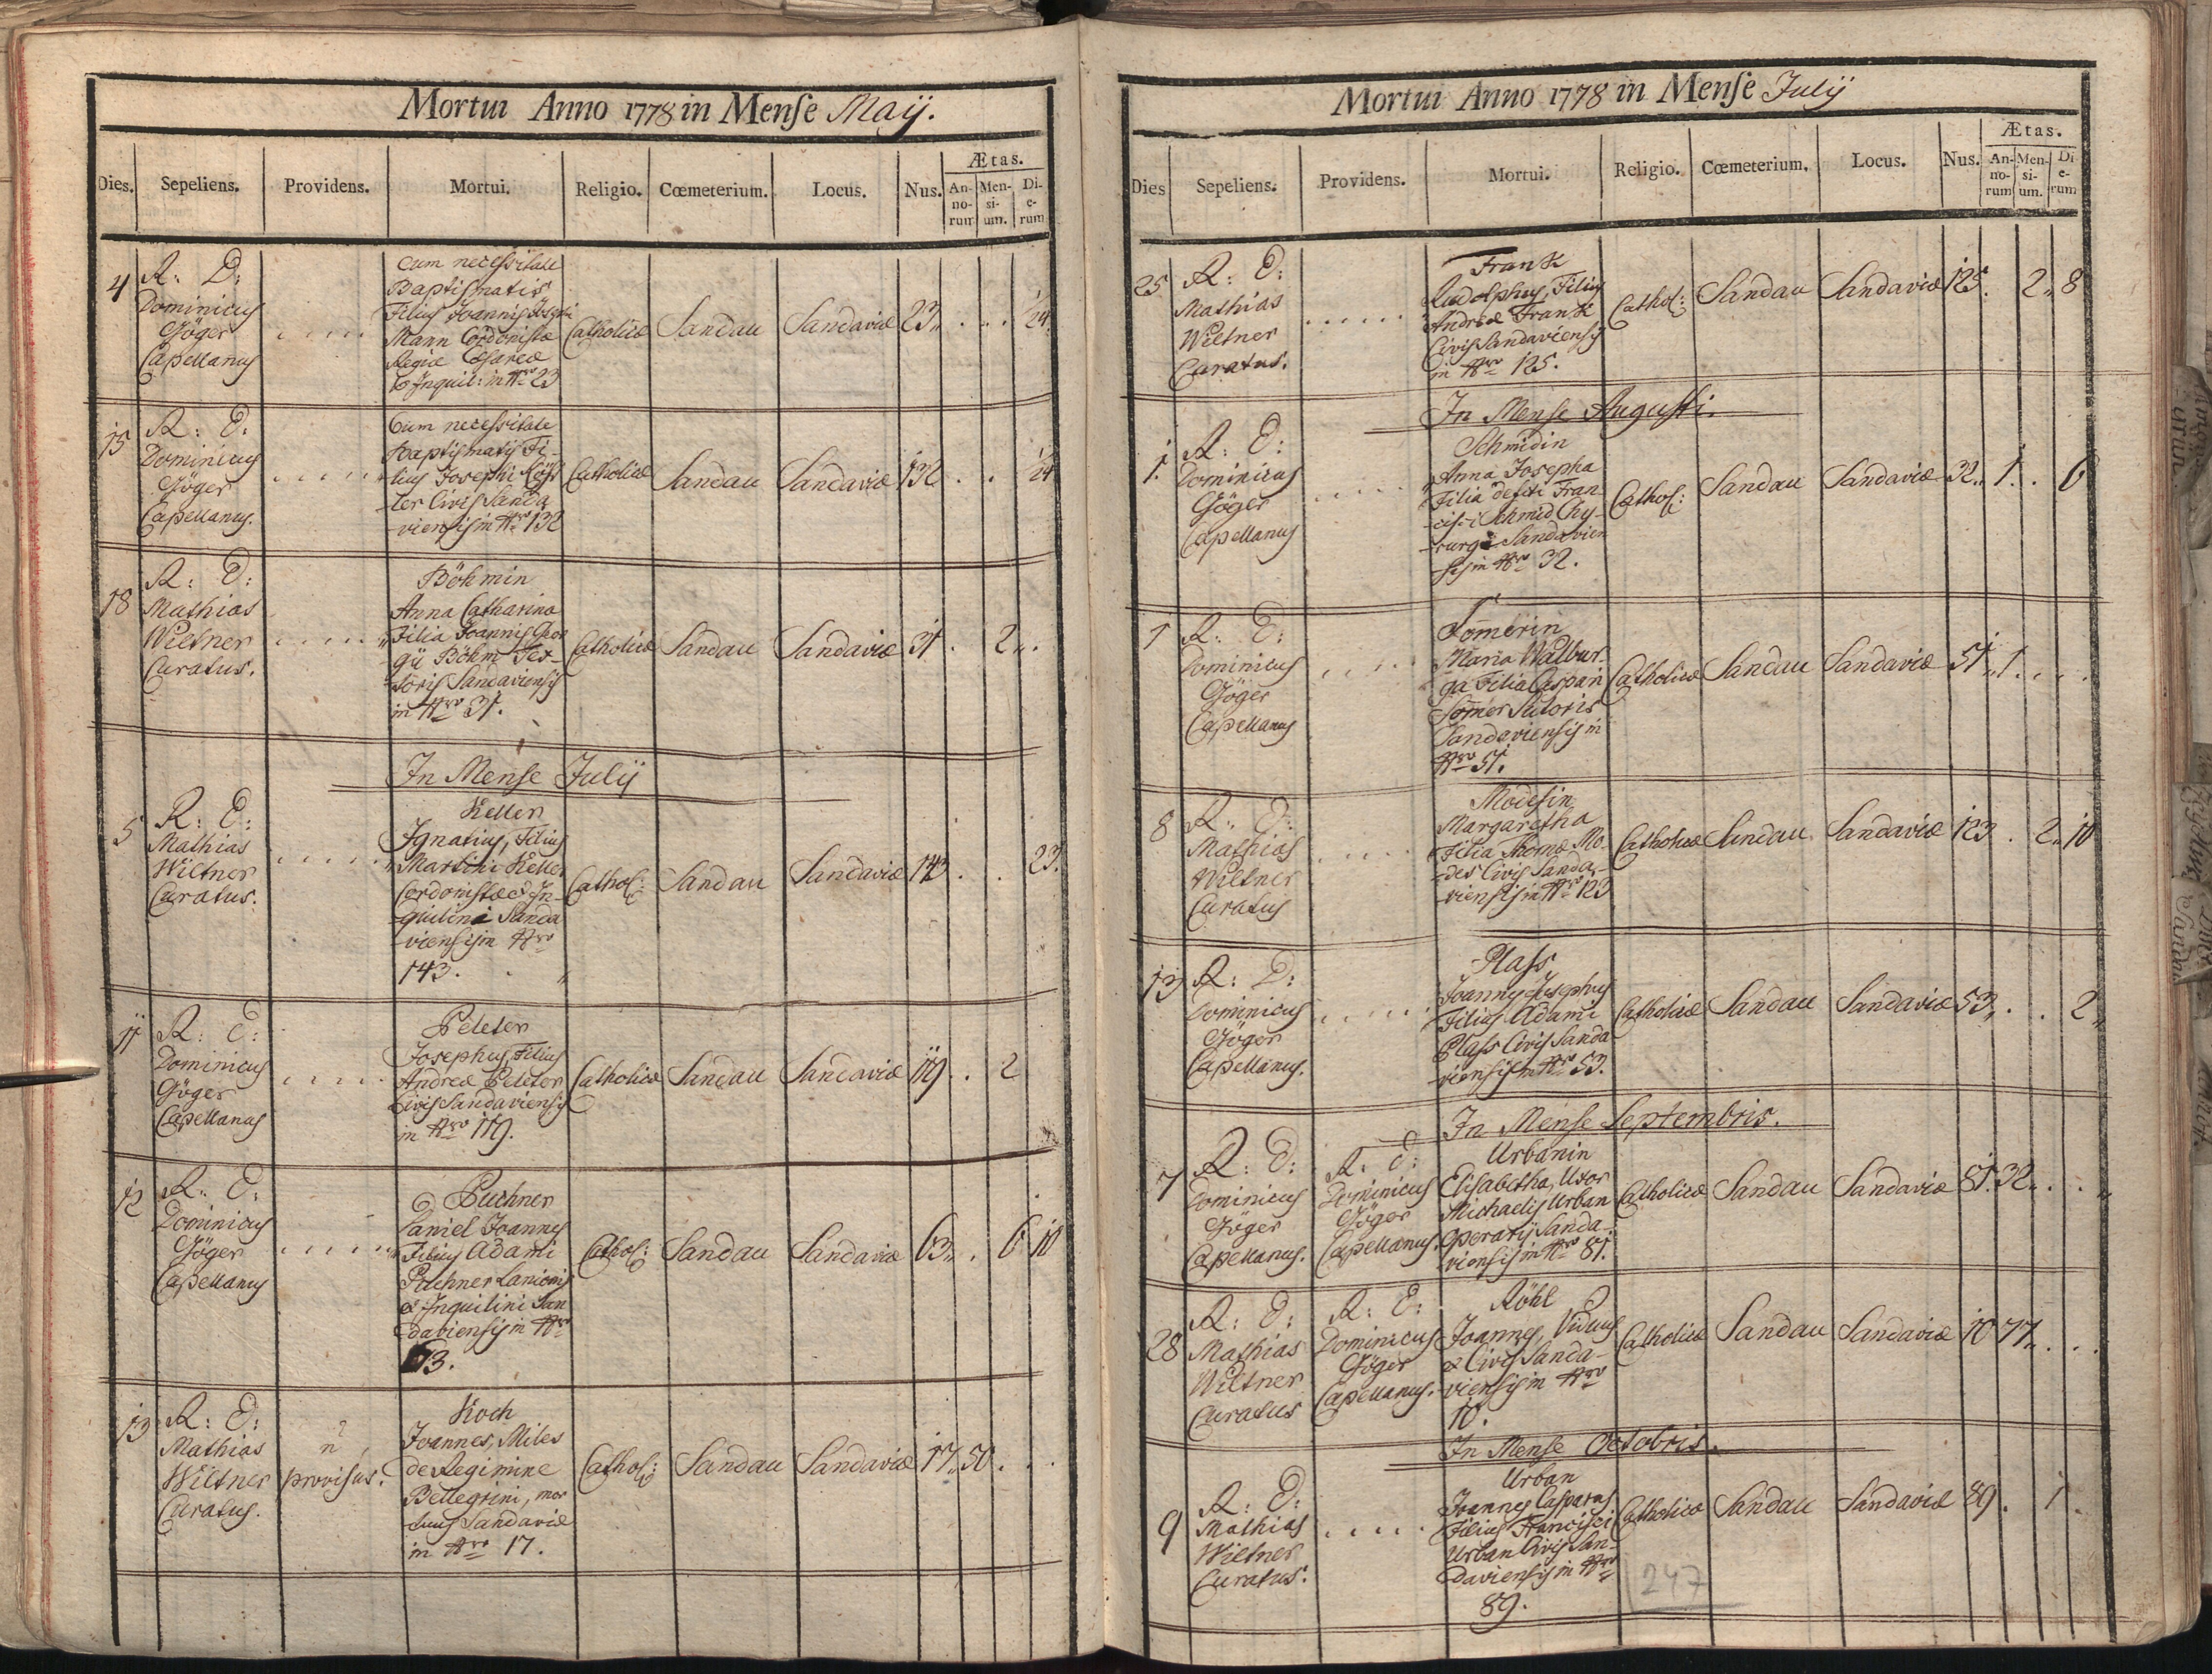 Mortui Anno 1778 in Mense Maij.
Dies. Sepeliens. Providens. Mortui. Religio. Cœmeterium. Locus. Nus. Ætas.
An-no-rum Men-si-um. Di-e-rum
4 R: D:
Dominicus
Jöger
Capellanus
Cum necessitate
Baptismatis
Filius Joannis Josephi
Mann Cordonistæ
Regiæ Cæsareæ
& Inquil: in Nro 23
Catholicæ Sandau Sandaviæ 23 . . 1/24
15 R: D:
Dominicus
Jöger
Capellanus.
Cum necessitate
Baptismatis Fi-
lius Josephi
-ler Civis Sanda
-viensis in Nro 132
Catholicæ Sandau Sandaviæ 132 . . 1/24
18 R: D:
Mathias
Wiltner
Curatus.
Böhmin
Anna Catharina
Filia Joannis Geor
gii Böhm Tex-
-toris Sandaviensis
in Nro 31.
Catholicæ Sandau Sandaviæ 31 . 2 .
In Mense Julij
5 R: D:
Mathias
Wiltner
Curatus.
Keller
Ignatius, Filius
Martini Keller
Cordonistæ & In-
-quilini Sanda
-viensis in Nro
143.
Cathol: Sandau Sandaviæ 143 . . 23.
11 R: D:
Dominicus
Jöger
Capellanus
Peleter
Josephus, Filius
Andreæ Peleter
Civis Sandaviensis
in Nro 119.
Catholicæ Sandau Sandaviæ 119 . . 2
12 R: D:
Dominicus
Jöger
Capellanus
Puchner
Daniel Joannes
Filius Adami
Puchner Lanionis
& Inquilini San
daviensis in Nro
63.
Cathol: Sandau Sandaviæ 63 . 6 10
13 R: D:
Mathias
Wiltner
Curatus.
n
provisus.
Koch
Joannes, Miles
de Regimine
Pellegrini, mor
tuus Sandaviæ
in Nro 17.
Cathol: Sandau Sandaviæ 17 50 . .
Mortui Anno 1778 in Mense Julij
Dies Sepeliens. Providens. Mortui. Religio. Cœmeterium. Locus. Nus. Ætas.
An-no-rum Men-si-um. Di-e-rum
25 R: D:
Mathias
Wiltner
Curatus.
Frank
Rudolphus, Filius
Andreæ Frank
Civis Sandaviensis
in Nro 125.
Cathol: Sandau Sandaviæ 125. 2 8
In Mense Augusti.
1. R: D:
Dominicus
Jöger
Capellanus
Schmidin
Anna Josepha
Filia defcti Fran-
-cisci Schmid Chy-
-rurgi Sandavien
sis in Nro 32.
Cathol: Sandau Sandaviæ 32 1. . 6
1 R: D:
Dominicus
Jöger
Capellanus
Som̄erin
Maria Walbur-
ga Filia Caspari
Som̄er Sutoris
Sandaviensis in
Nro 51.
Catholicæ Sandau Sandaviæ 51 1 . .
8 R: D:
Mathias
Wiltner
Curatus
Modesin
Margaretha
Filia Thomæ Mo-
-des Civis Sanda-
-viensis in Nro 123
Catholicæ Sandau Sandaviæ 123 . 2 10
13 R: D:
Dominicus
Jöger
Capellanus.
Plass
Joannes Josephus
Filius Adami
Plass Civis Sanda
-viensis in Nro 53.
Catholicæ Sandau Sandaviæ 53 . . 2
In Mense Septembris.
7 R: D:
Dominicus
Jöger
Capellanus.
R: D:
Dominicus
Jöger
Capellanus.
Urbanin
Elisabetha, Uxor
Michaelis Urban
Operarij Sanda-
-viensis in Nro 81.
Catholicæ Sandau Sandaviæ 81. 32 . .
28 R: D:
Mathias
Wiltner
Curatus
R: D:
Dominicus
Jöger
Capellanus.
Röhl
Joannes, Viduus
& Civis Sanda-
-viensis in Nro
10.
Catholicæ Sandau Sandaviæ 10 77 . .
In Mense Octobris.
9 R: D:
Mathias
Wiltner
Curatus.
Urban
Joannes Casparus
Filius Francisci
Urban Civis San-
daviensis in Nro
89.
Catholicæ Sandau Sandaviæ 89 . 1 .
247